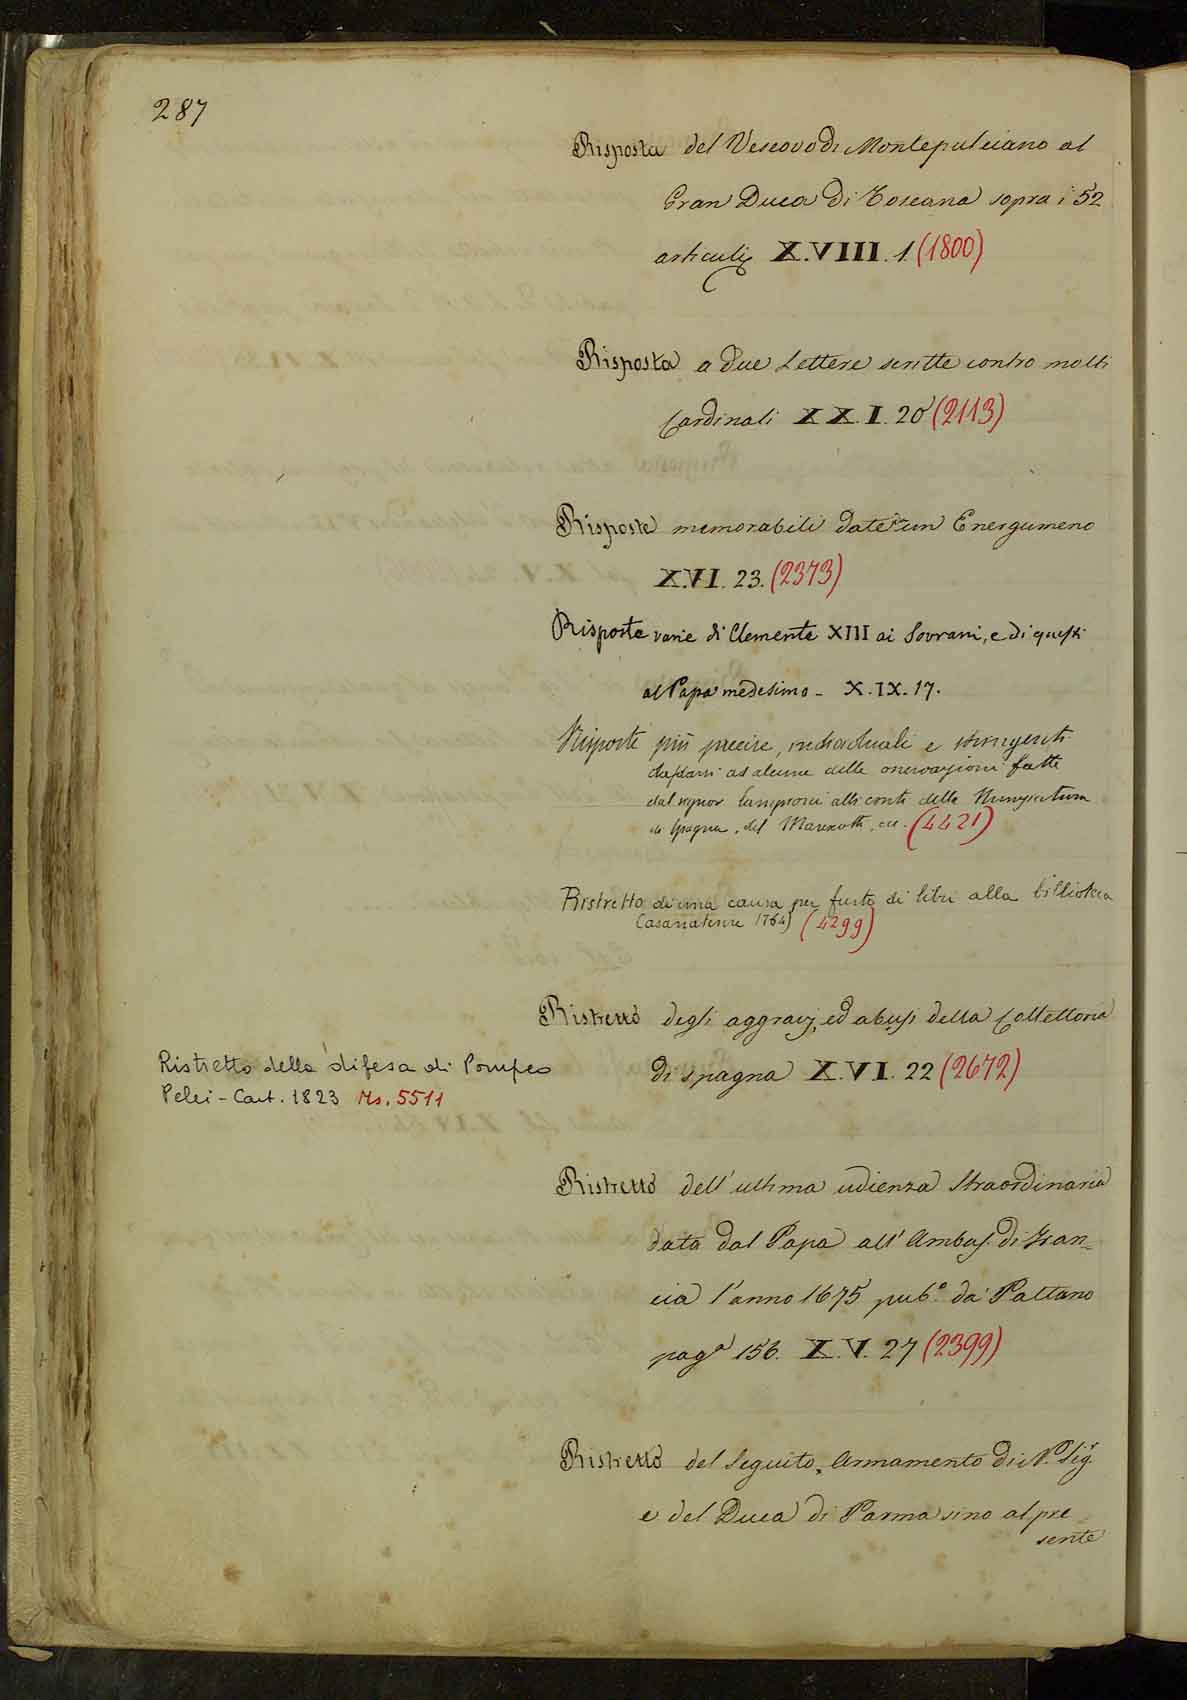 287
Risposta del Vescovo di Montepulciano al
Gran Duca di Toscana sopra i 52
articuli X.VIII.1.(1800)
Risposta a due Lettere scritte contro molti
Cardinali XX.I.20 (2113)
Risposte memorabili date un Energumeno
X.VI.23.(2373)
Risposte varie di Clemente XIII ai Sovrani, e di questi
al Papa medesimo - X.IX.17.
Risposte più precise, individuali e stringenti
da darsi ad alcune delle osservazioni fatte
dal signor alli conti della Nunziatura
di Spagna, del ecc. (4421)
Ristretto di una causa per furto di libri alla biblioteca
Casanatense 1764) (4299)
Ristretto degli aggravj, ed abusi della Collettoria
di Spagna X.VI.22 (2672)
Ristretto della difesa di Pompeo
Pelei - Cart. 1823 Ms. 5511
Ristretto dell'ultima udienza Straordinaria
data dal Papa all'Ambas. di Fran=
cia l'anno 1675 pub.o da Pattano
pag.a 156. X.V.27 (2399)
Ristretto del Seguito, Armamento di N.o Sig.r
e del Duca di Parma sino al pre
sente